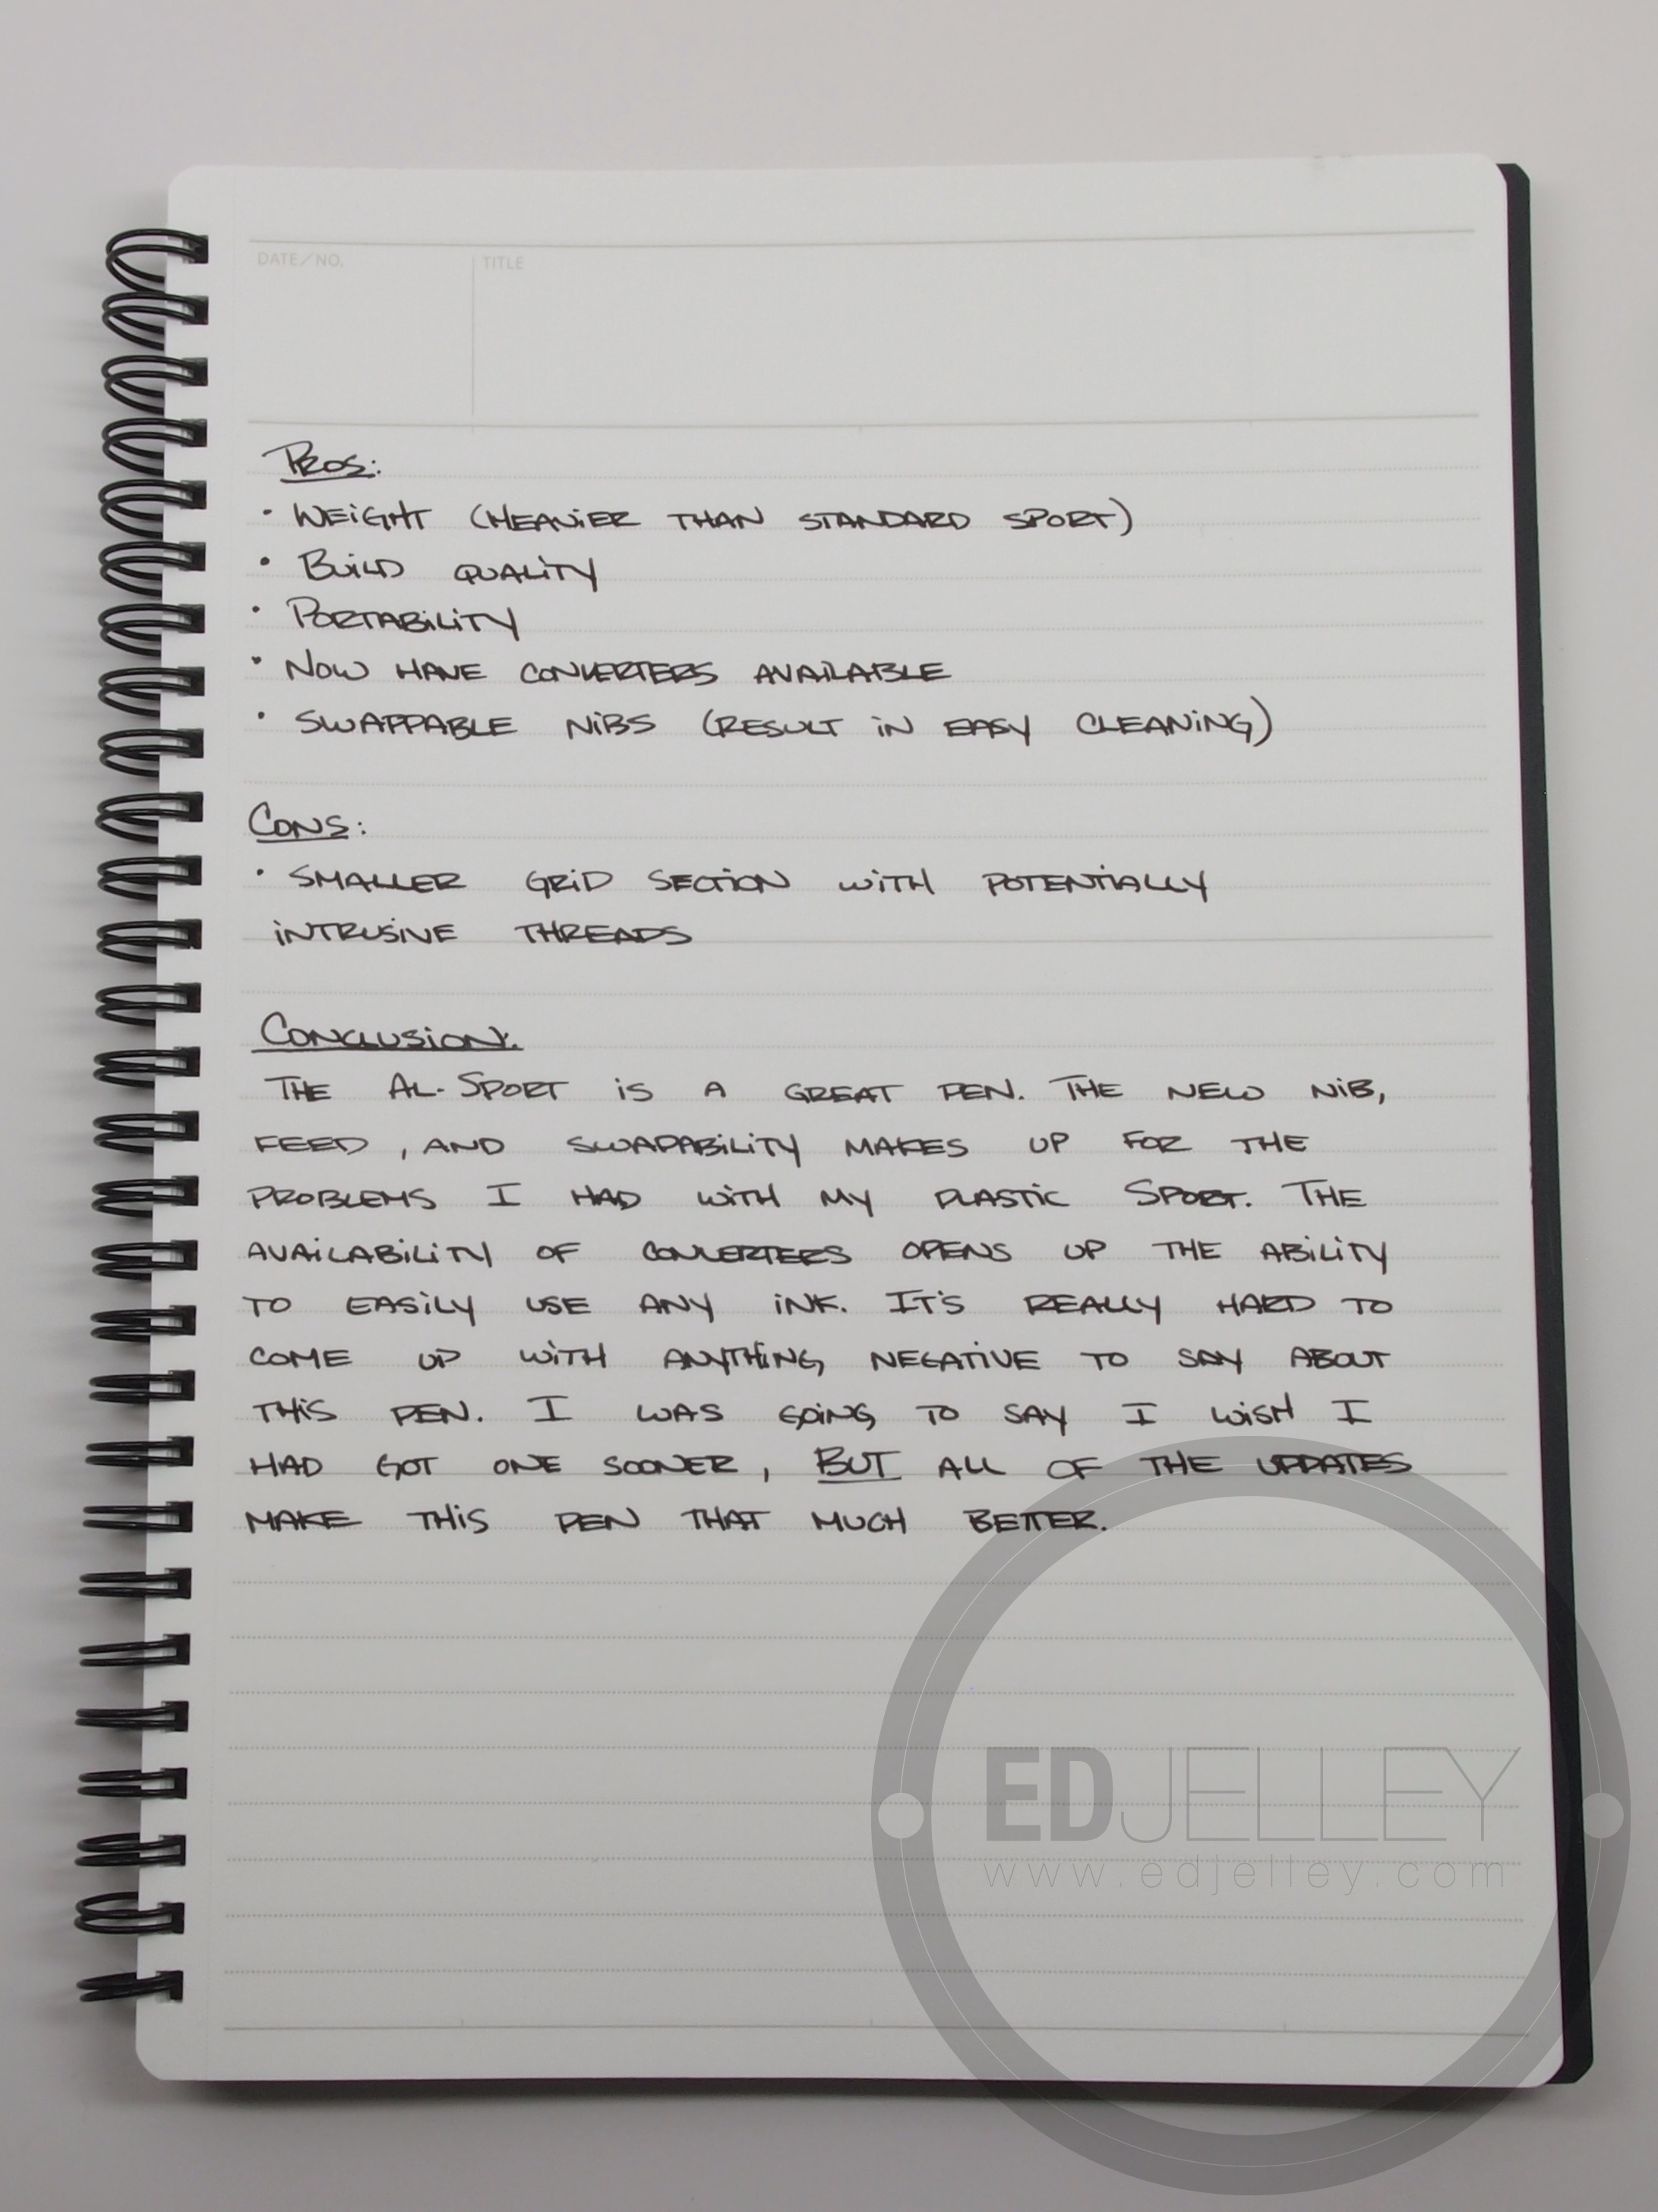 DATE/NO.
TITLE
PROS:
• WEiGHT (HEAVIER THAN STANDARD SPORT)
• BUiLD QUALiTY
• PORTABiLiTY
• NOW HAVE CONVERTERS AVAiLABLE
• SWAPPABLE NiBS (RESULT iN EASY CLEANiNG)
CONS:
• SMALLER GRiD SECTiON WiTH POTENTiALLY
iNTRUSiVE THREADS
CONCLUSiON:
THE AL-SPORT iS A GREAT PEN. THE NEW NiB,
FEED, AND SWAPABiLiTY MAKES UP FOR THE
PROBLEMS I HAD WiTH MY PLASTiC SPORT. THE
AVAiLABiLiTY OF CONVERTERS OPENS UP THE ABiLiTY
TO EASiLY USE ANY iNK. IT'S REALLY HARD TO
COME UP WiTH ANYTHiNG NEGATiVE TO SAY ABOUT
THiS PEN. I WAS GOiNG TO SAY I WiSH I
HAD GOT ONE SOONER, BUT ALL OF THE UPDATES
MAKE THiS PEN THAT MUCH BETTER.
EDJELLEY
www.edjelley.com